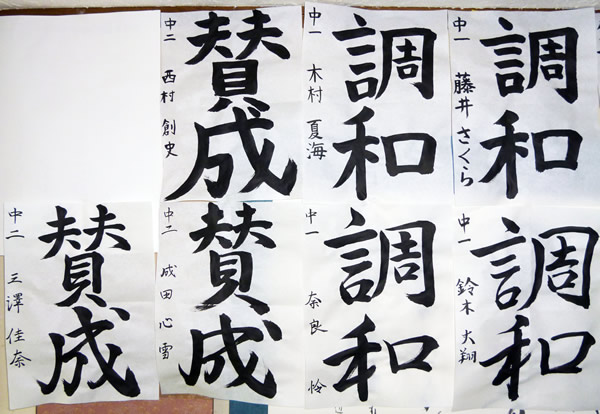 調和
中一 藤井さくら
調和
中一 木村 夏海
賛成
中二 西村 創史
調和
中一 鈴木 大翔
調和
中一 奈良 怜
賛成
中二 成田 心雪
賛成
中二 三澤 佳奈